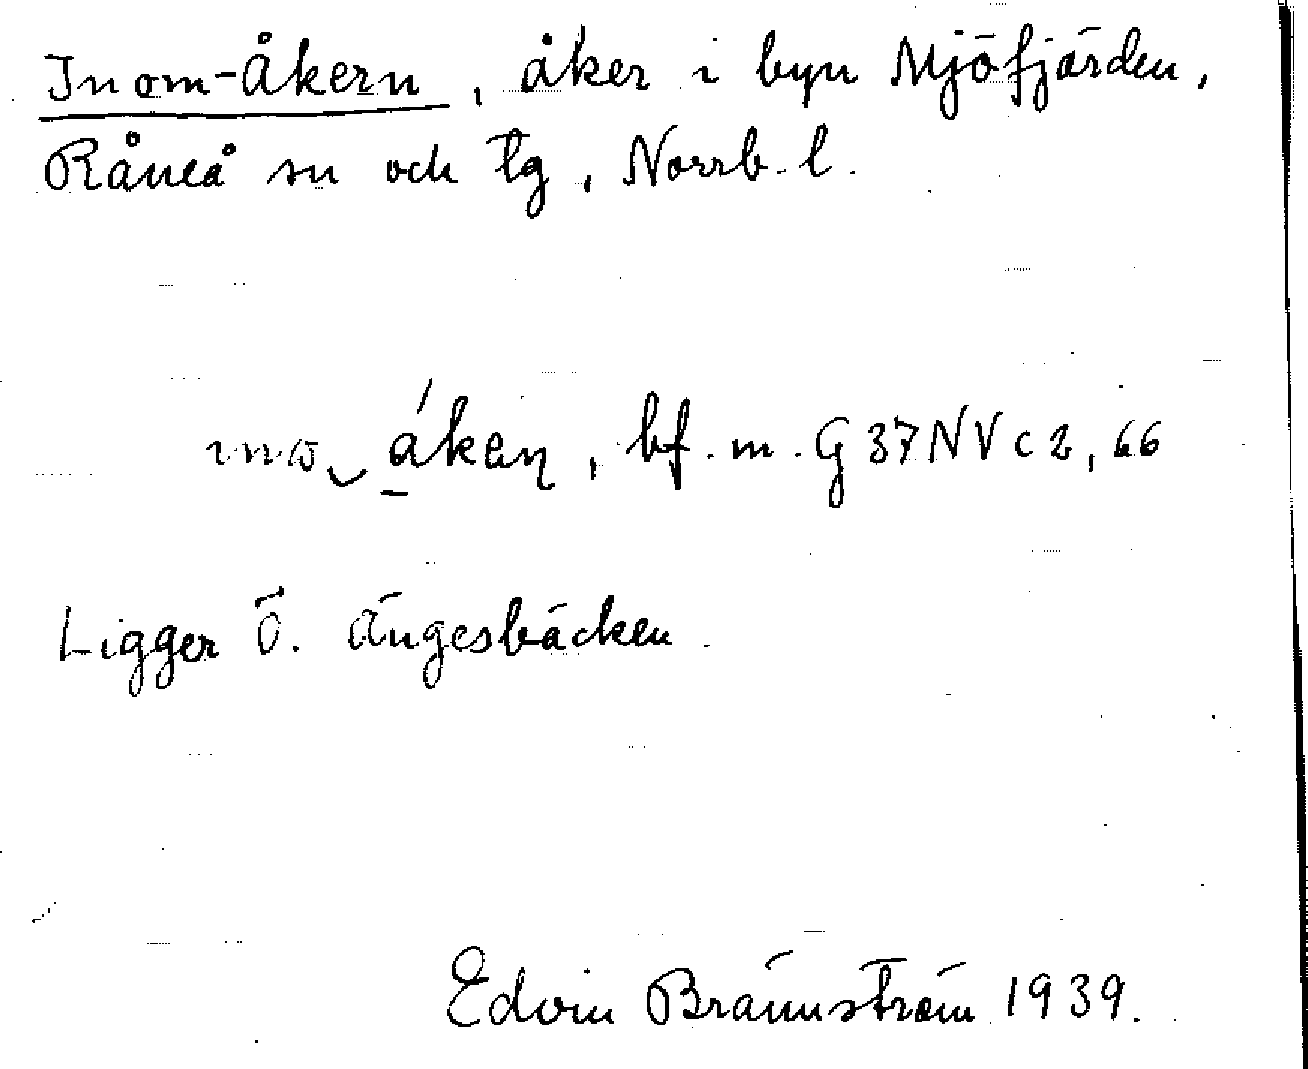 Inom-Åkern, åker i byn Mjöfjärden,
Råneå sn och tg, Norrb. l.
bf. m. G 37 NV c 2, 66
Ligger Ö. Ängesbäcken.
Edvin Brännström 1939.